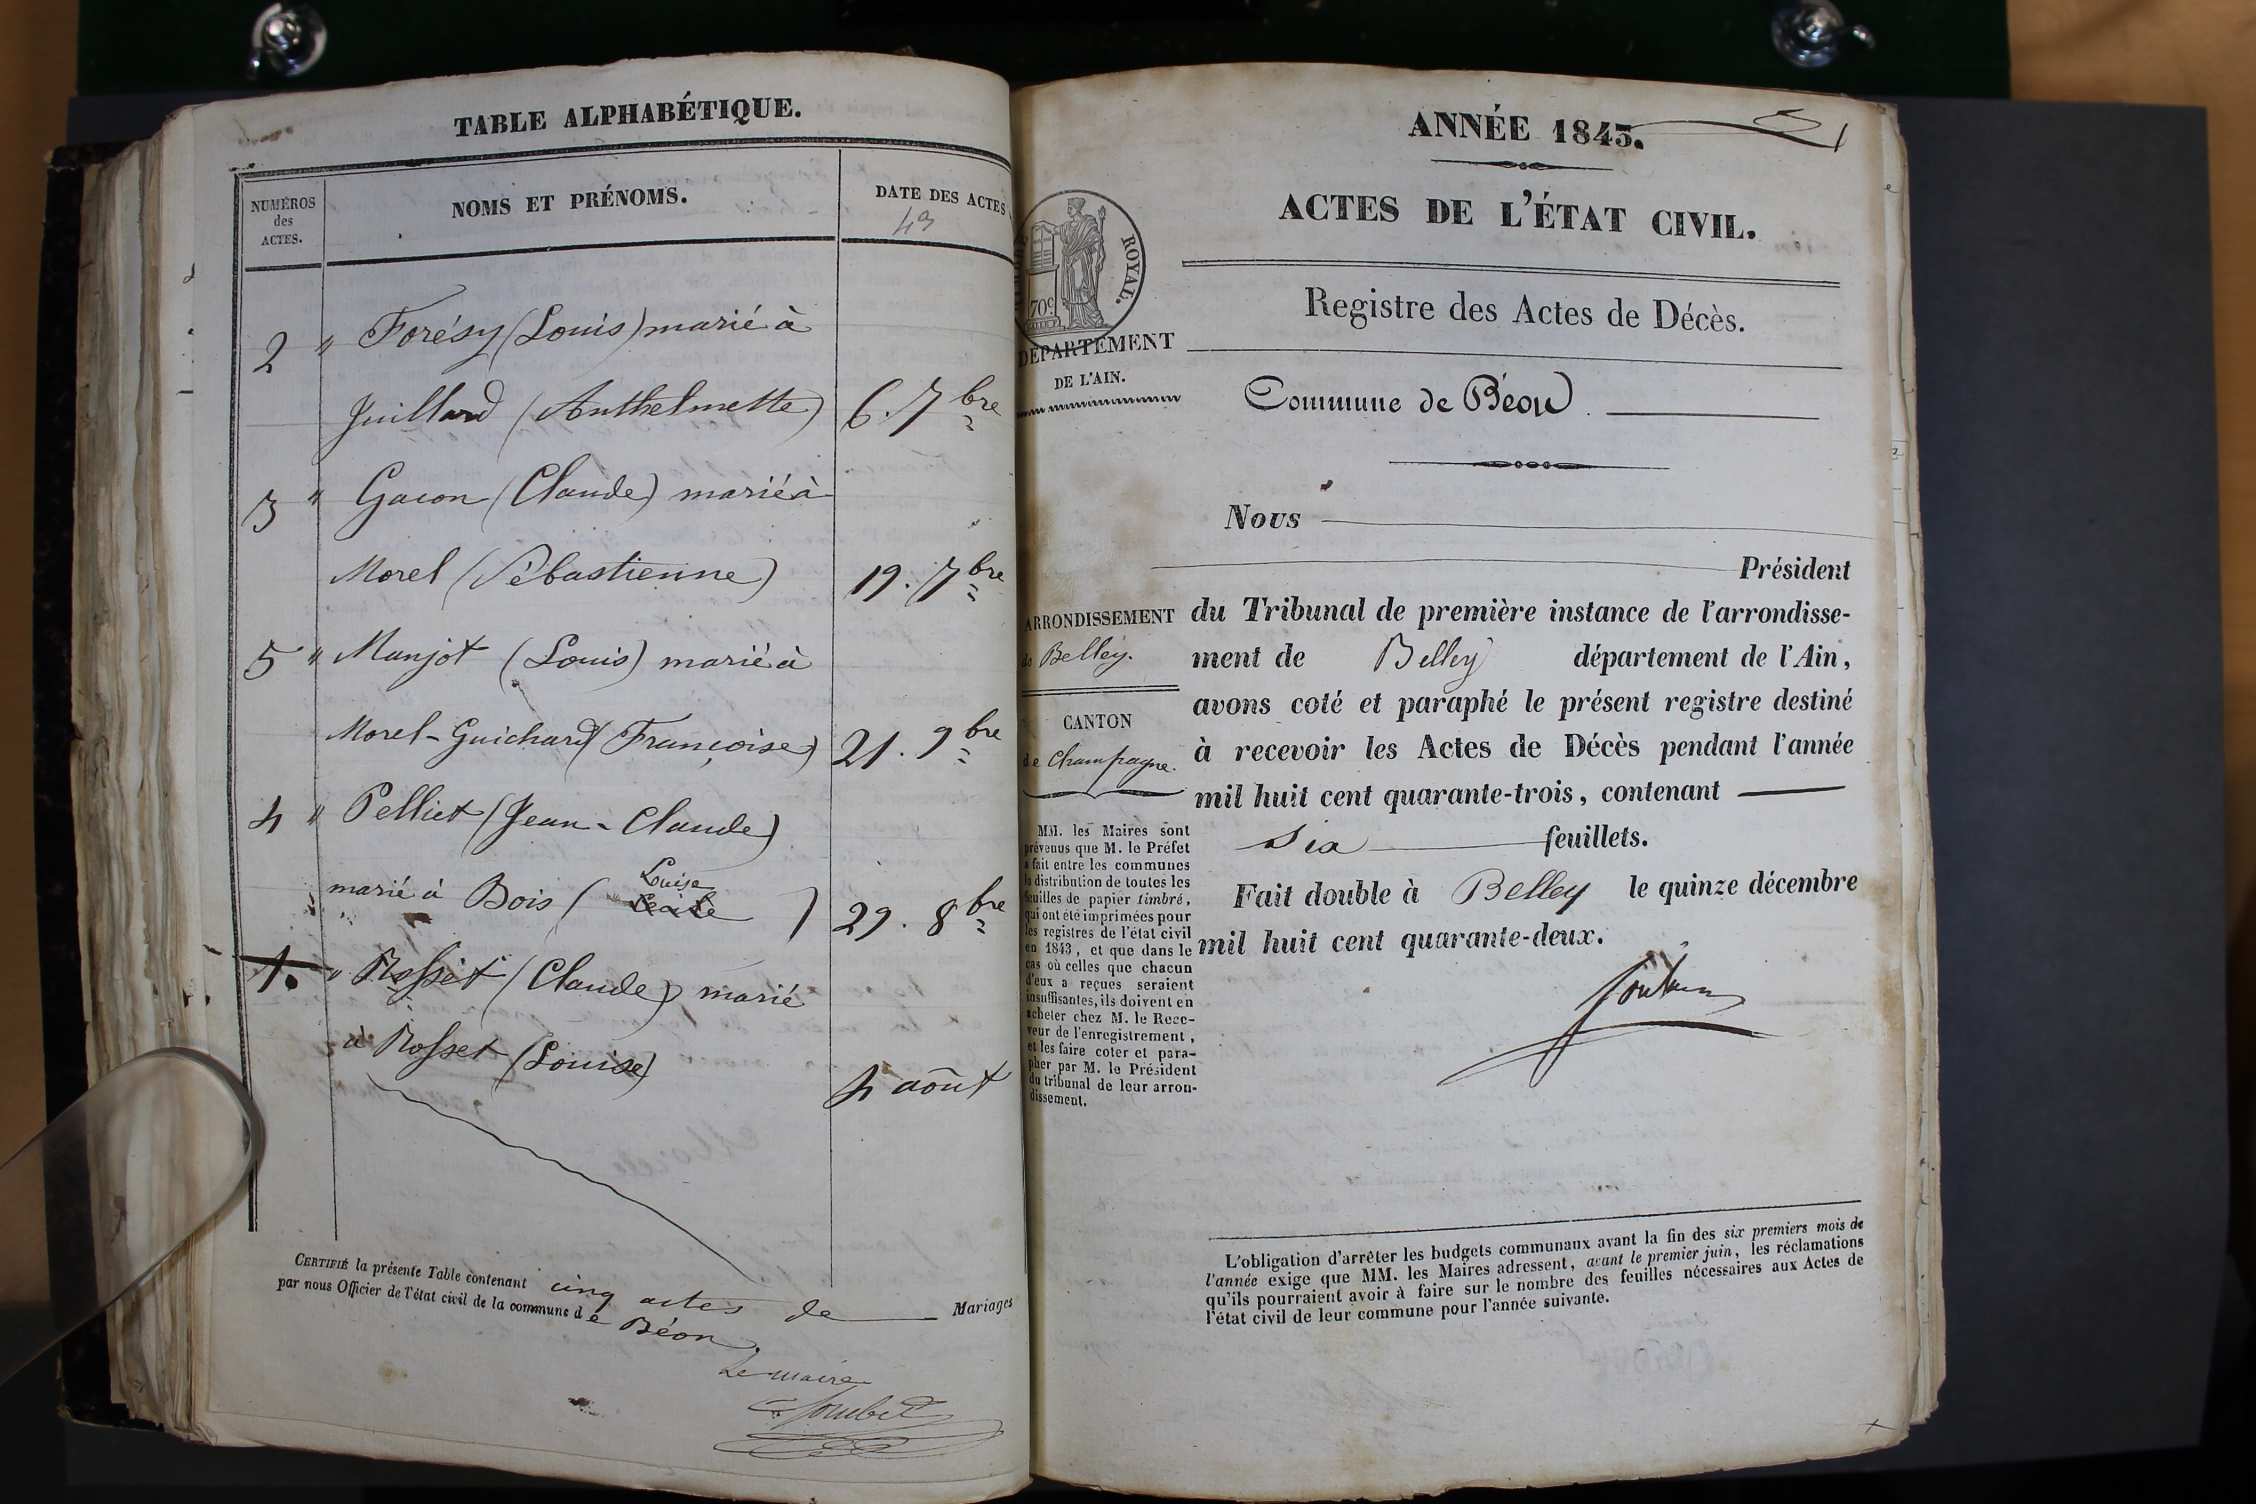 TABLE ALPHABÉTIQUE.
NUMÉROS
des
ACTES.
NOMS ET PRÉNOMS.
DATE DES ACTES
43
2 " Forésy (Louis) marié à
Juillard (Anthelmette) 6. 7bre
3 " Gacon (Claude) marié à
Morel (Sébastienne) 19. 7bre
5 " Manjot (Louis) marié à
Morel-Guichard (Françoise) 21. 9bre
4 " Pelliet (Jean-Claude)
Louise
marié à Bois ( ) 29. 8bre
1. " Rosset (Claude) marié
à Rosset (Louise)
4 août
CERTIFIÉ la présente Table contenant cinq actes de Mariages
par nous Officier de l'état civil de la commune de Béon
Le maire
ANNÉE 1843.
1
ACTES DE L'ÉTAT CIVIL.
ROYAL.
70c
Registre des Actes de Décès.
DÉPARTEMENT
DE L'AIN.
Commune de Béon
Nous
Président
ARRONDISSEMENT
de Belley.
CANTON
de Champagne.
du Tribunal de première instance de l'arrondisse-
ment de Belley département de l'Ain,
avons coté et paraphé le présent registre destiné
à recevoir les Actes de Décès pendant l'année
mil huit cent quarante-trois, contenant
six feuillets.
Fait double à Belley le quinze décembre
mil huit cent quarante-deux.
MM. les Maires sont
prévenus que M. le Préfet
a fait entre les communes
la distribution de toutes les
feuilles de papier timbré,
qui ont été imprimées pour
les registres de l'état civil
en 1843, et que dans le
cas où celles que chacun
d'eux a reçues seraient
insuffisantes, ils doivent en
acheter chez M. le Rece-
veur de l'enregistrement,
et les faire coter et para-
pher par M. le Président
du tribunal de leur arron-
dissement.
L'obligation d'arrêter les budgets communaux avant la fin des six premiers mois de
l'année exige que MM. les Maires adressent, avant le premier juin, les réclamations
qu'ils pourraient avoir à faire sur le nombre des feuilles nécessaires aux Actes de
l'état civil de leur commune pour l'année suivante.